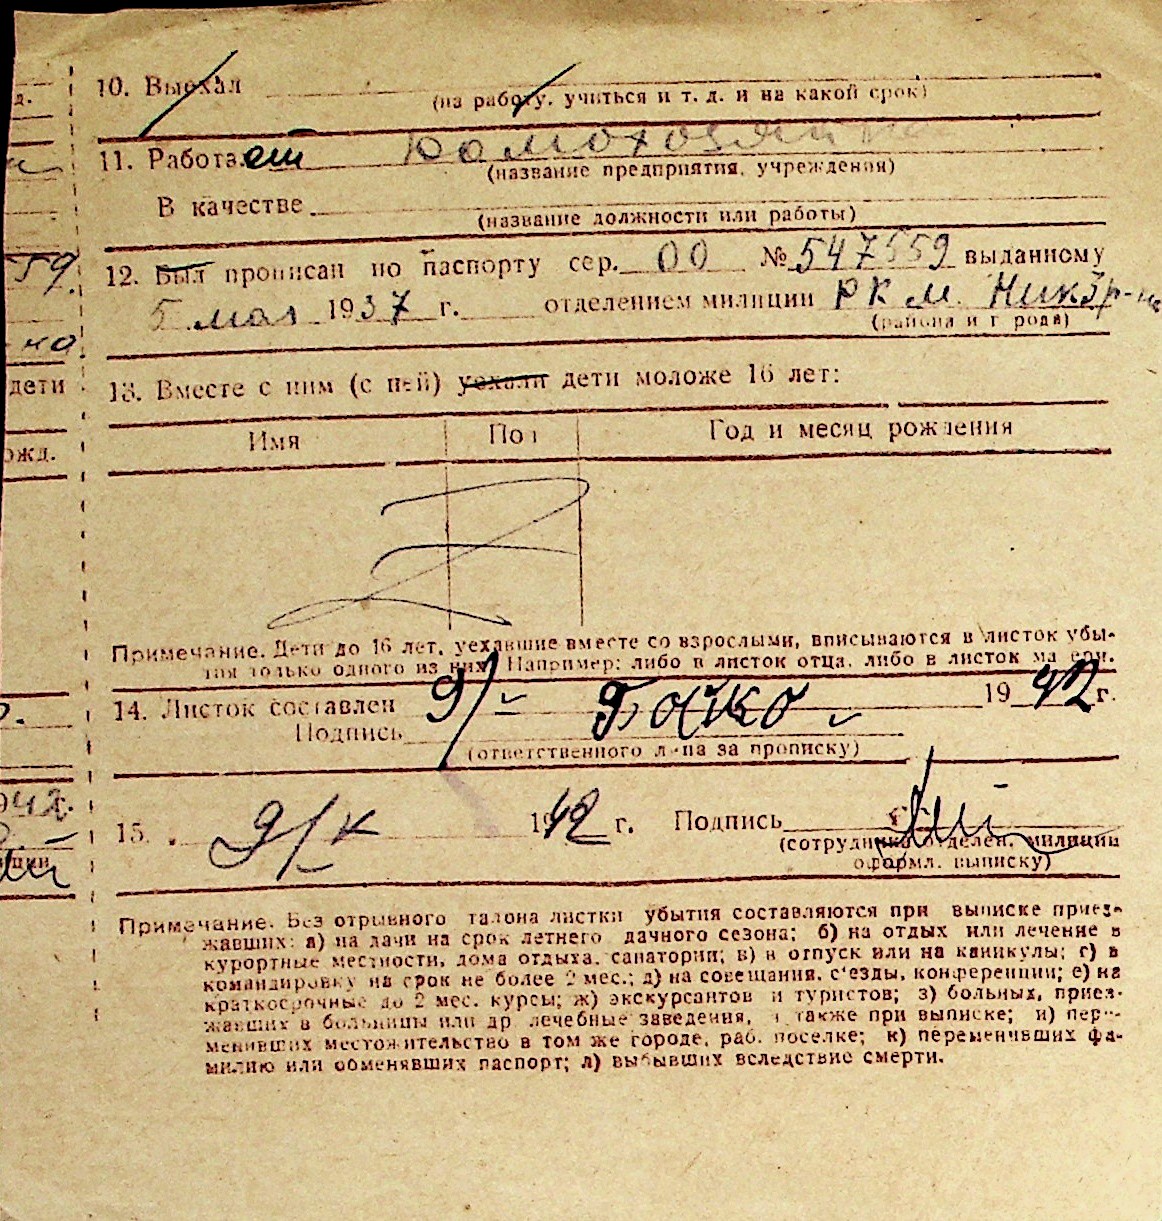 10. Выехал
(на работу, учиться и т. д. и на какой срок)
11. Работает Домохозяйка
(название предприятия, учреждения)
В качестве
(название должности или работы)
12. Был прописан по паспорту сер. 00 № 547559 выданному
59.
5 мая 1937 г. отделением милиции РКМ
(района и города)
ка
дети
13. Вместе с ним (с ней) уехали дети моложе 16 лет:
Имя Пол Год и месяц рождения
ожд.
Примечание. Дети до 16 лет, уехавшие вместе со взрослыми, вписываются в листок убы-
тия только одного из них. Например: либо в листок отца, либо в листок матери.
14. Листок составлен 9/ 1942 г.
Подпись
(ответственного лица за прописку)
942 г.
15. 9/ 1942 г. Подпись
(сотрудника отделен. милиции
оформл. выписку)
Примечание. Без отрывного талона листки убытия составляются при выписке приез-
жавших: а) на дачи на срок летнего дачного сезона; б) на отдых или лечение в
курортные местности, дома отдыха, санатории; в) в отпуск или на каникулы; г) в
командировку на срок не более 2 мес.; д) на совещания, с'езды, конференции; е) на
краткосрочные до 2 мес. курсы; ж) экскурсантов и туристов; з) больных, приез-
жавших в больницы или др лечебные заведения, а также при выписке; и) пере-
менивших местожительство в том же городе, раб. поселке; к) переменивших фа-
милию или обменявших паспорт; л) выбывших вследствие смерти.